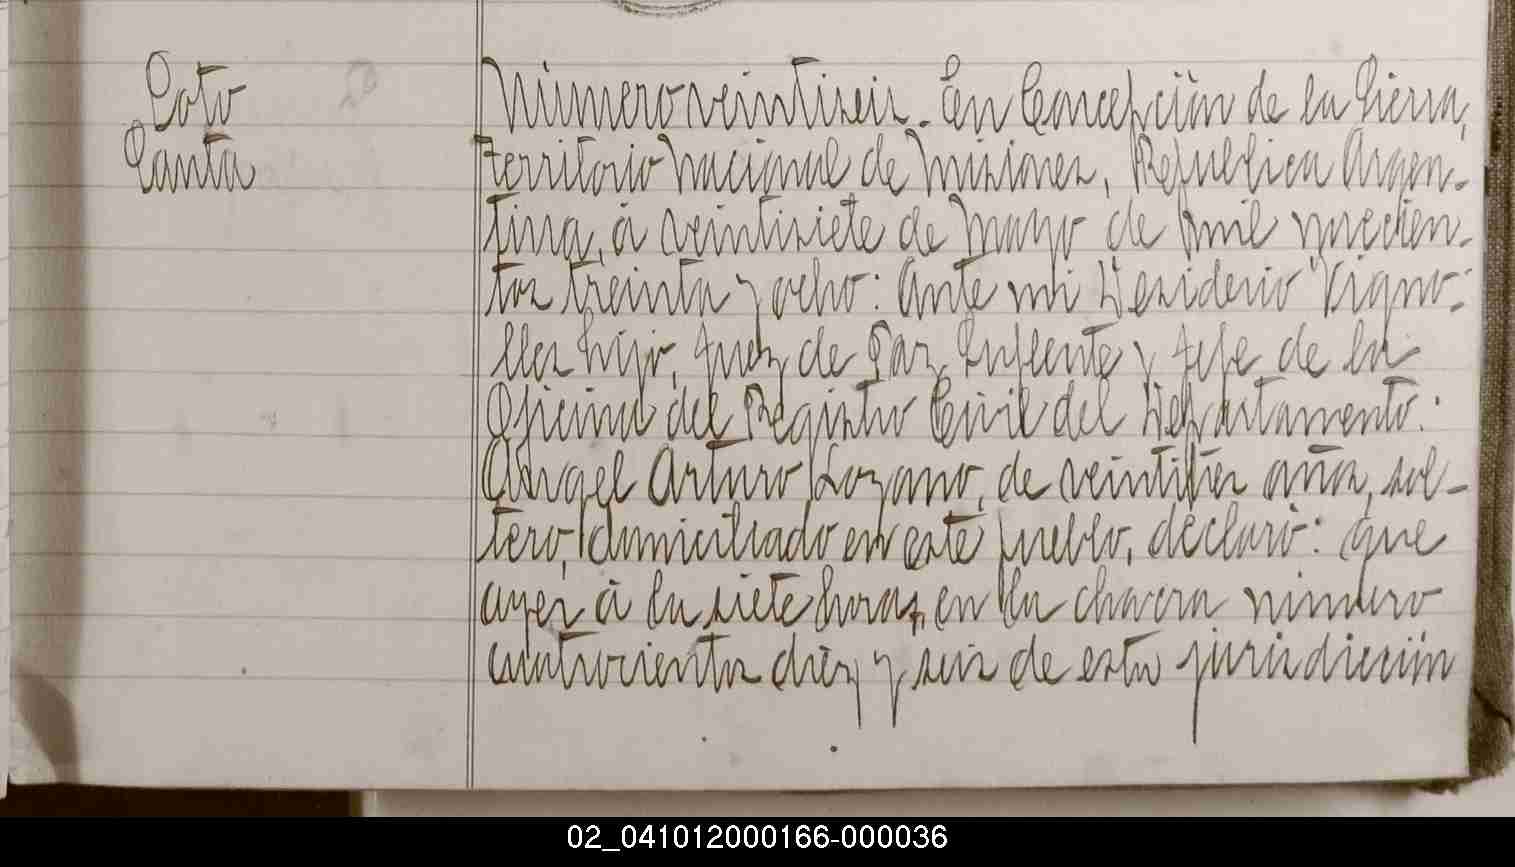 Coto
Santa
Número veintiseis. En Concepción de la Sierra,
Territorio Nacional de Misiones, República Argen-
tina, á veintisiete de Mayo de mil novecien-
tos treinta y ocho: Ante mi Desiderio Vigno-
lles hijo, Juez de Paz Suplente y Jefe de la
Oficina del Registro Civil del Departamento:
Angel Arturo Lozano, de veintitres años, sol-
tero, domiciliado en este pueblo, declaró: que
ayer á la siete horas, en la chacra número
cuatrocientos diez y seis de esta jurisdicción
02_041012000166-000036